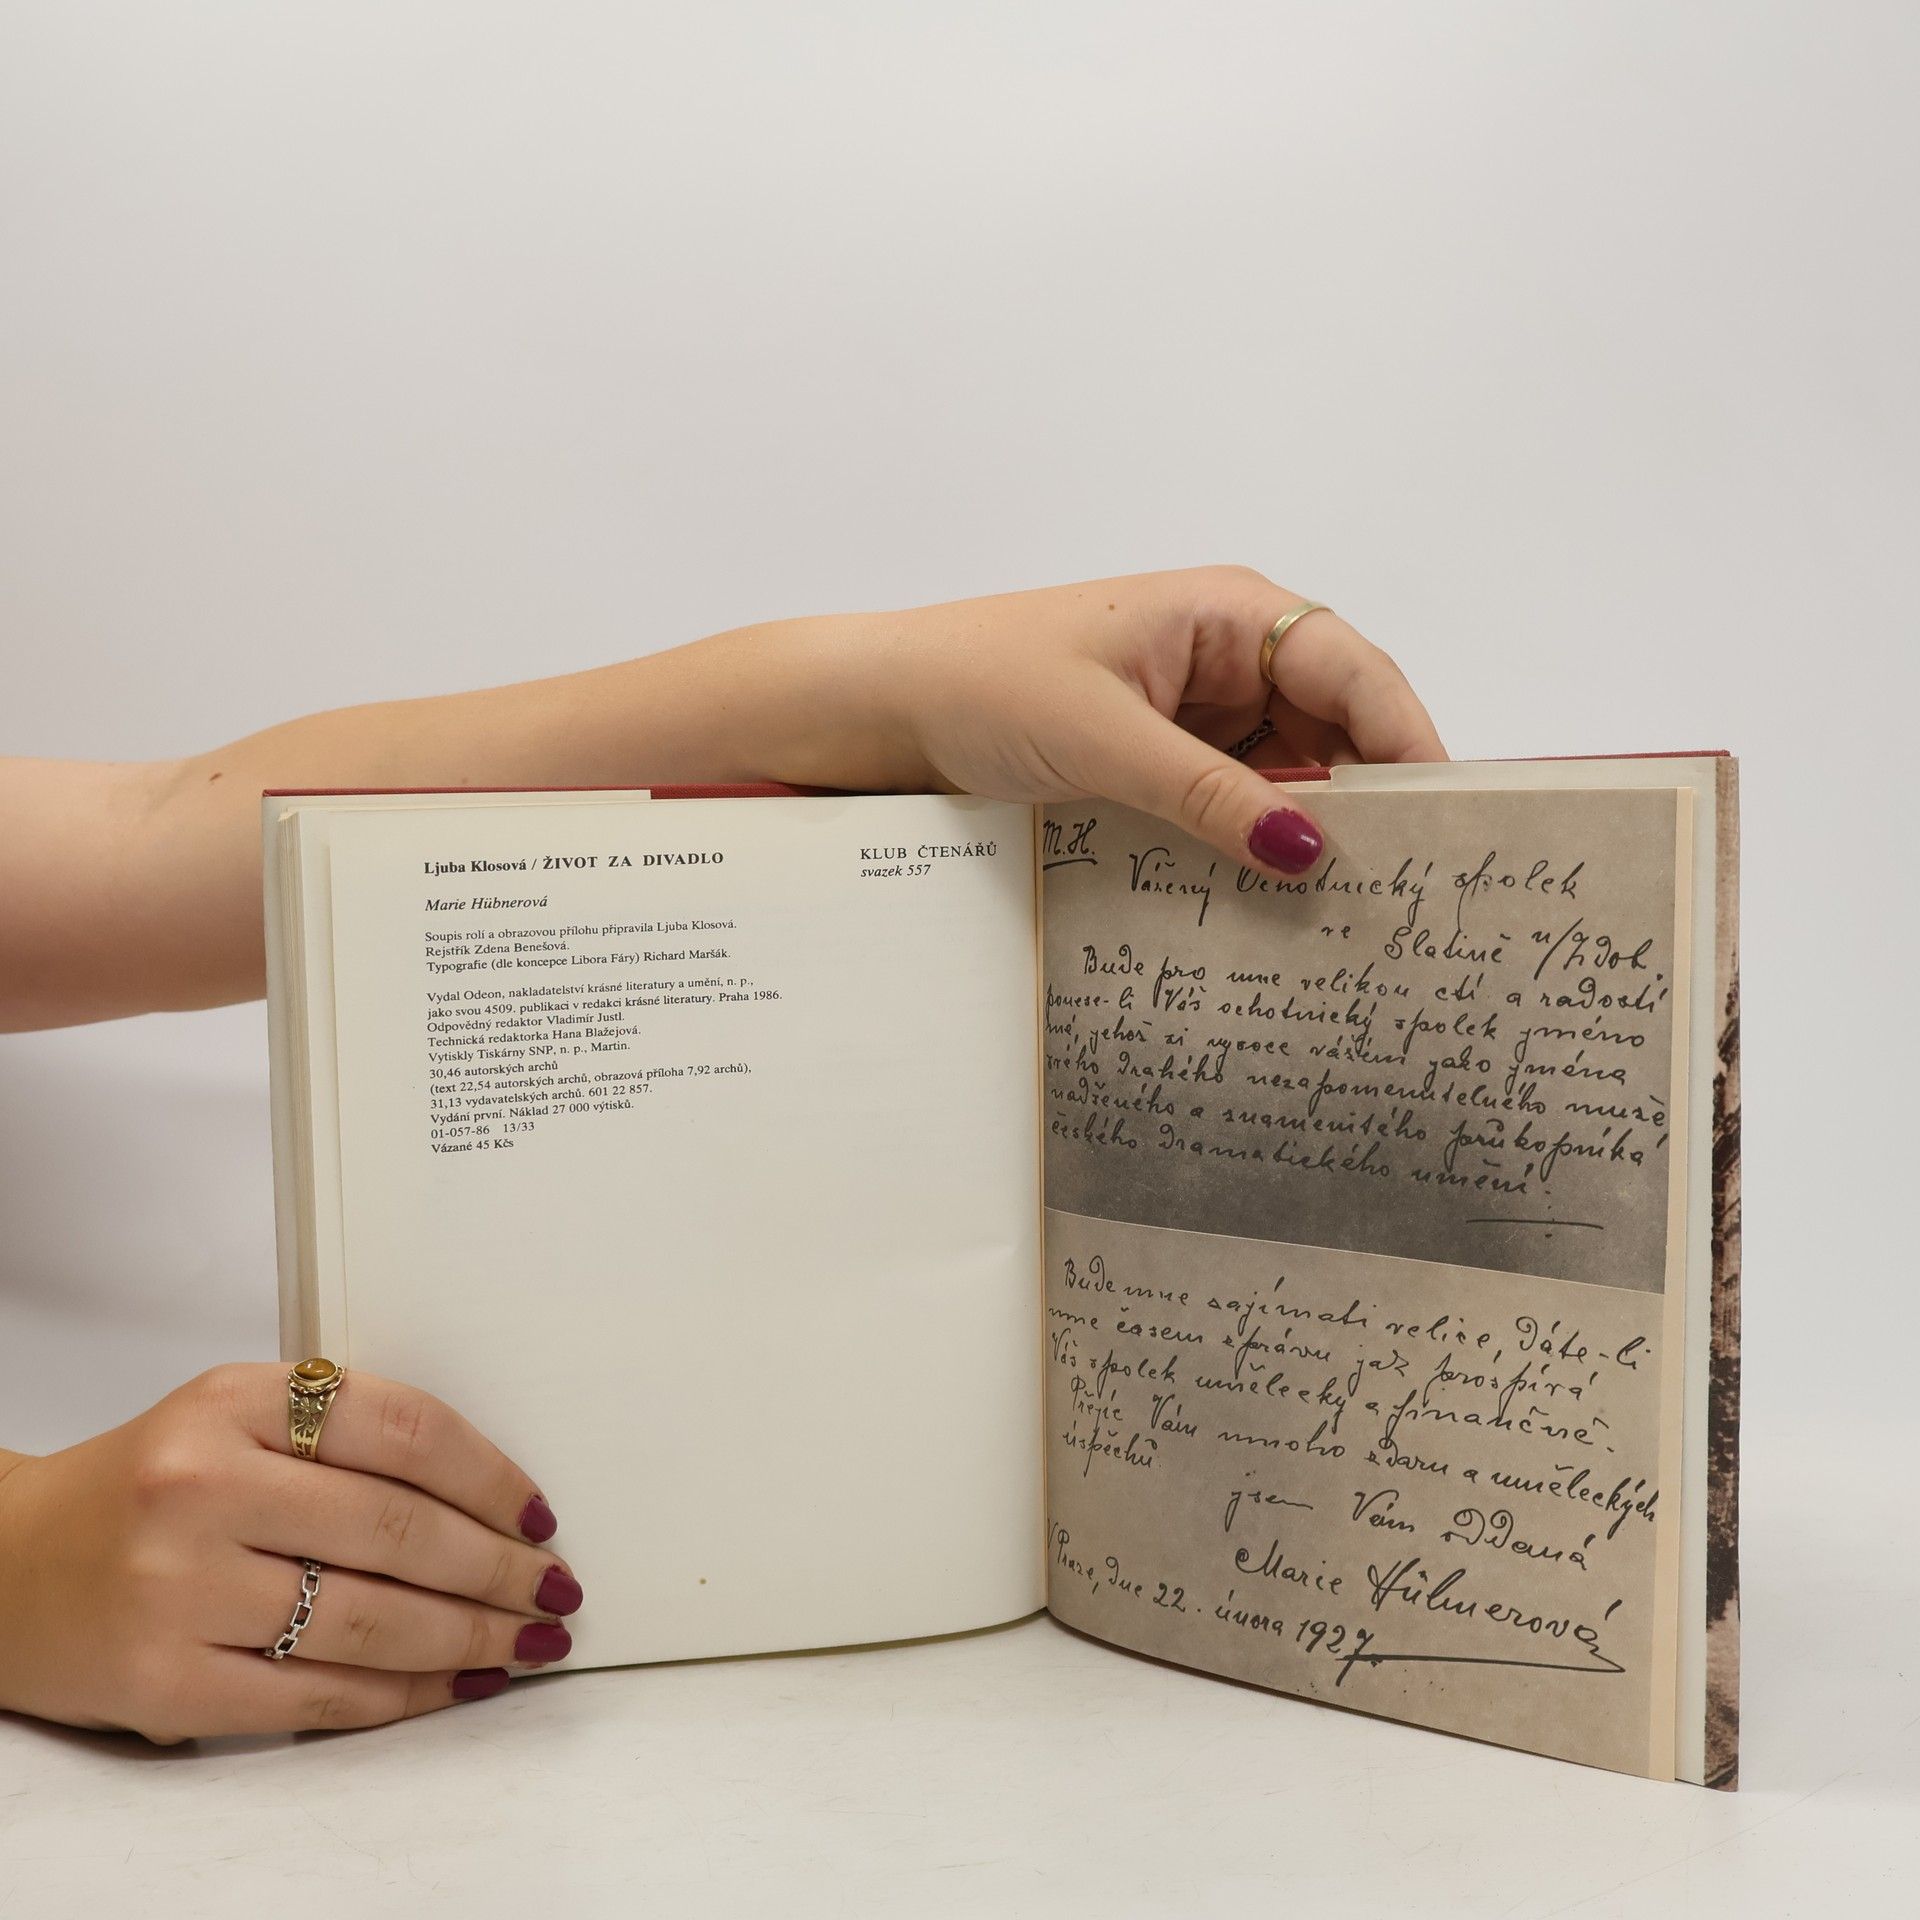 Ljuba Klosová / ŽIVOT ZA DIVADLO
KLUB ČTENÁŘŮ
svazek 557
Marie Hübnerová
Soupis rolí a obrazovou přílohu připravila Ljuba Klosová.
Rejstřík Zdena Benešová.
Typografie (dle koncepce Libora Fáry) Richard Maršák.
Vydal Odeon, nakladatelství krásné literatury a umění, n. p.,
jako svou 4509. publikaci v redakci krásné literatury. Praha 1986.
Odpovědný redaktor Vladimír Justl.
Technická redaktorka Hana Blažejová.
Vytiskly Tiskárny SNP, n. p., Martin.
30,46 autorských archů
(text 22,54 autorských archů, obrazová příloha 7,92 archů),
31,13 vydavatelských archů. 601 22 857.
Vydání první. Náklad 27 000 výtisků.
01-057-86 13/33
Vázané 45 Kčs
M. H.
Vážený Ochotnický spolek
ve Slatině n/Zdob.
Bude pro mne velikou ctí a radostí
ponese-li Váš ochotnický spolek jméno
mé, jehož si vysoce vážím jako jména
svého drahého nezapomenutelného muže
nadšeného a znamenitého průkopníka
českého dramatického umění.
Bude mne zajímati velice, dáte-li
mne časem zprávu jak prospívá
Váš spolek umělecky a finančně.
Přejíc Vám mnoho zdaru a uměleckých
úspěchů.
jsem Vám oddaná
Marie Hübnerová
V Praze, dne 22. února 1927.